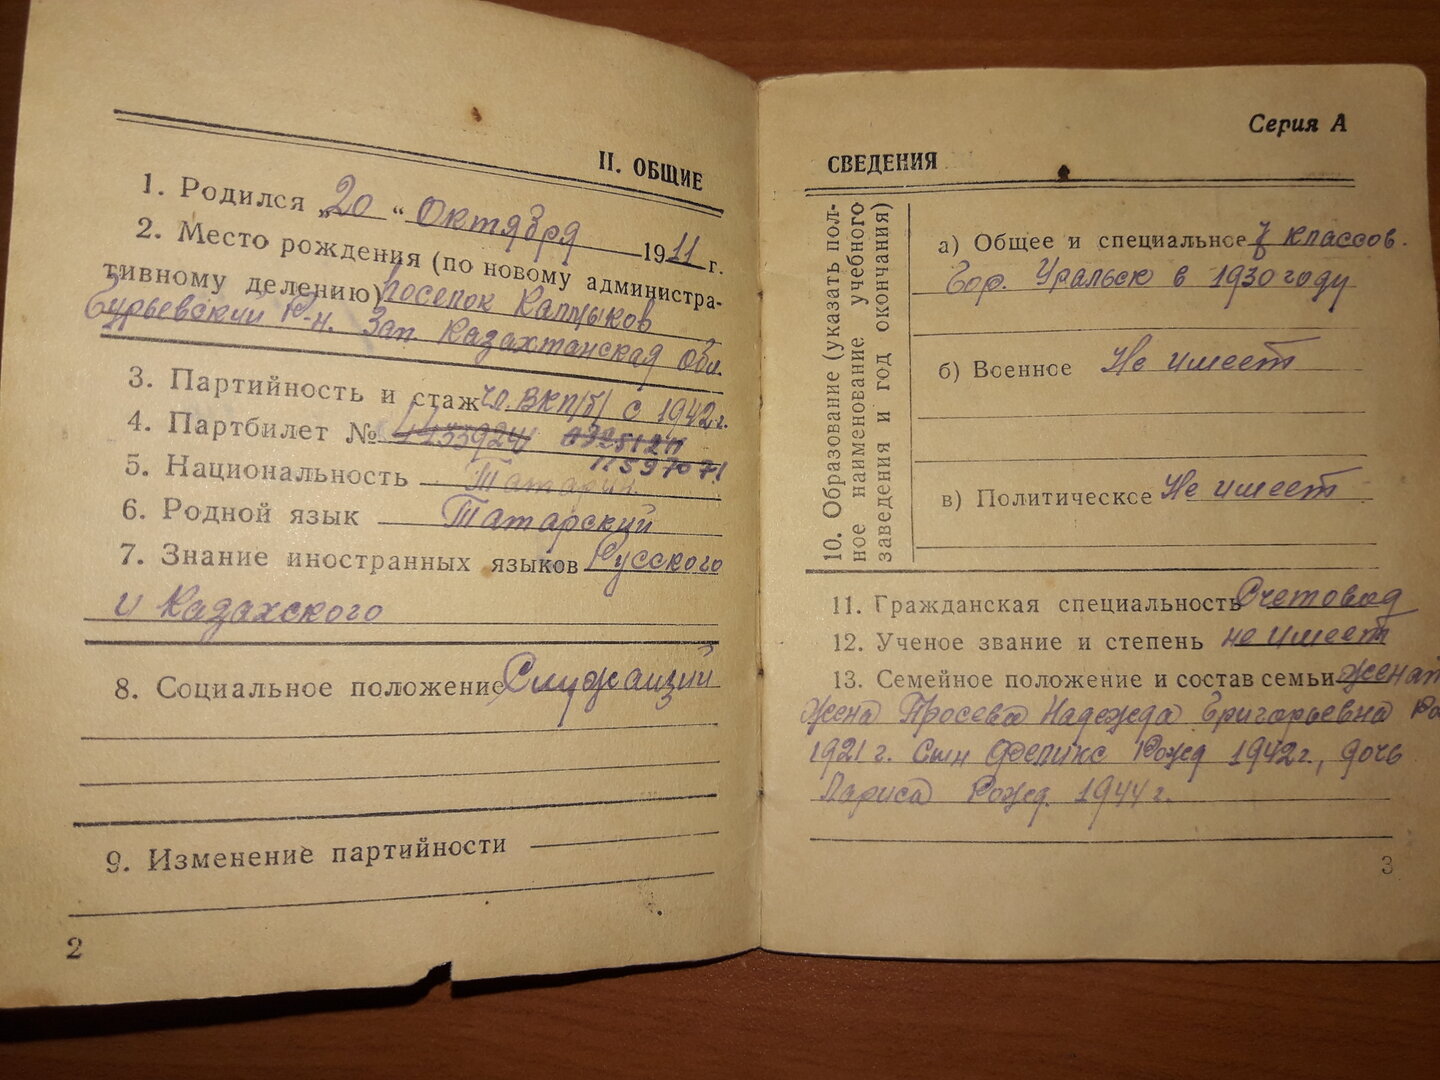 II. ОБЩИЕ
1. Родился „20“ Октября 1911 г.
2. Место рождения (по новому администра-
тивному делению) поселок Калмыков
Гурьевский р-н. Зап Казахтанская Обл.
3. Партийность и стаж чл. ВКП/б/ с 1942 г.
4. Партбилет №
11597071
5. Национальность Татарин.
6. Родной язык Татарский
7. Знание иностранных языков Русского
и Казахского
8. Социальное положение Служащий
9. Изменение партийности
2
Серия А
СВЕДЕНИЯ
10. Образование (указать пол-
ное наименование учебного
заведения и год окончания)
а) Общее и специальное 7 классов.
Гор. Уральск в 1930 году
б) Военное Не имеет
в) Политическое Не имеет
11. Гражданская специальность Счетовод
12. Ученое звание и степень не имеет
13. Семейное положение и состав семьи женат
жена Просева Надежда Григорьевна Ро
1921 г. Сын Феликс Рожд 1942 г., дочь
Лариса Рожд. 1944 г.
3